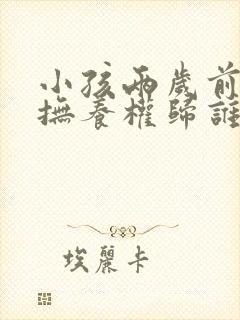 小孩兩歲前
撫養權歸誰
埃麗卡